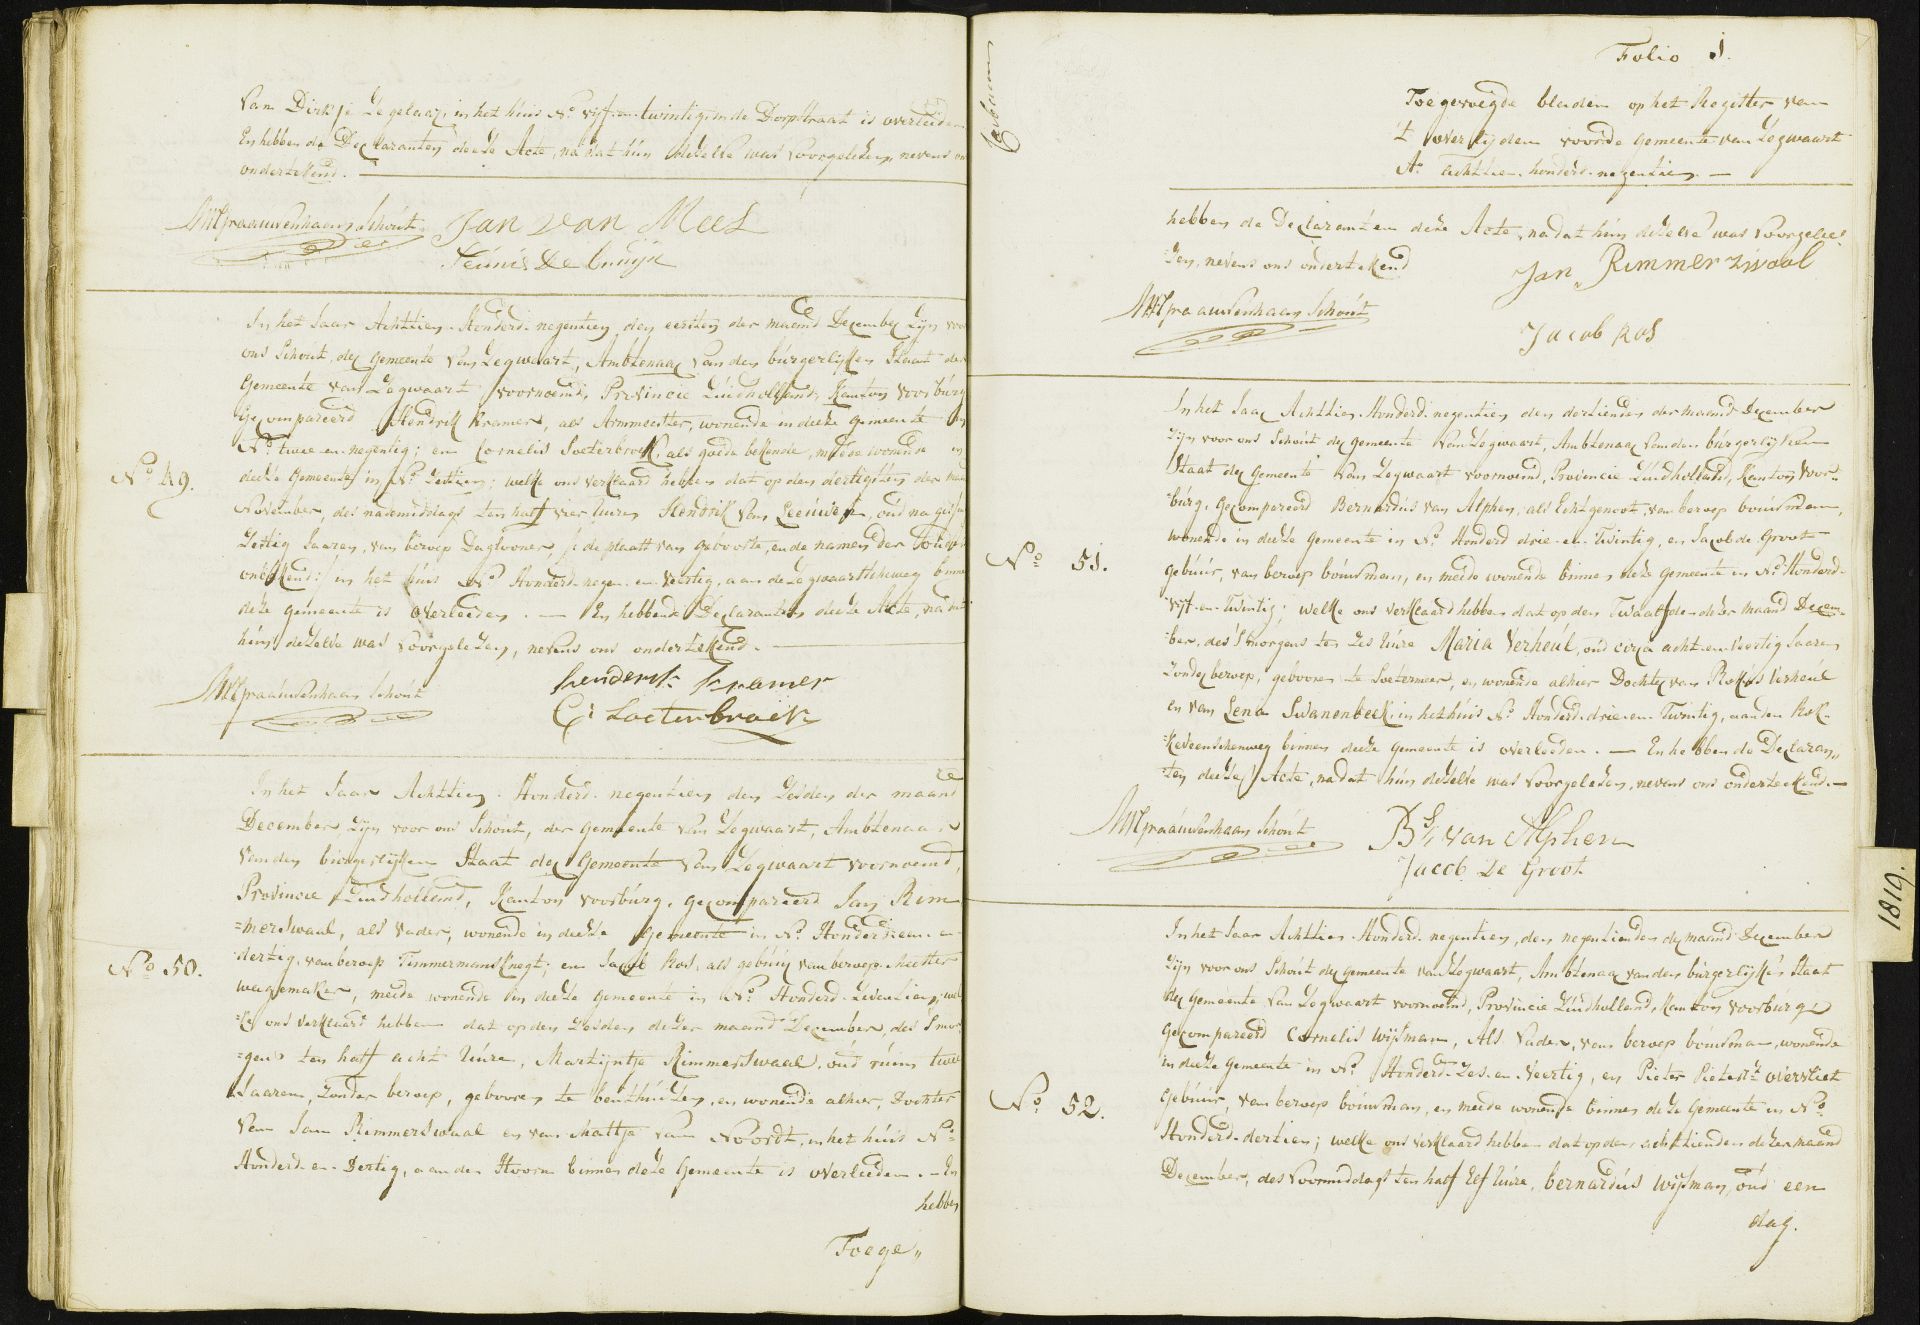 van Dirkje Zegelaar, in het huis No. vijf-en-twintig, in de Dorpstraat is overleeden
En hebben de Declaranten deeze Acte, na dat hun dezelve was voorgelezen, nevens ons
ondertekend.
Schout Jan van Mees
Teunis De bruijn
In het Jaar Achttien-Honderd-negentien, den eersten der maand December Zijn voor
ons Schout, der Gemeente van Zegwaart, Ambtenaar van den burgerlijken Staat der
Gemeente van Zegwaart voornoemd, Provincie Zuidholland, Kanton Voorburg
Gecompareerd Hendrik Kramer, als Armmeester, wonende in deeze Gemeente in
No. twee-en-negentig; en Cornelis Soeterbroek, als goede bekende, meede wonende in
deeze Gemeente in No. Zestien; welke ons verklaard hebben dat op den dertigsten der maand
November, des nademiddags ten half vier Uuren Hendrik van Leeuwen, oud na gissing
Zestig Jaaren, van beroep Daglooner, /: de plaats van geboorte, en de namen der Ouders
onbekend:/ in het huis No. Honderd-negen-en-veertig, aan de Zegwaartscheweg binnen
deeze Gemeente is overleeden. — En hebben de Declaranten deeze Acte, na dat
hun dezelve was voorgelezen, nevens ons ondertekend.
No. 49.
Schout henderik Kramer
C: Soetenbroek
In het Jaar Achttien-Honderd-negentien den Zesden der maand
December, Zijn voor ons Schout, der Gemeente van Zegwaart, Ambtenaar
van den burgerlijken Staat der Gemeente van Zegwaart voornoemd,
Provincie Zuidholland, Kanton voorburg, gecompareerd Jan Rim
=merswaal, als Vader, wonende in deeze Gemeente in No. Honderd-een-en-
dertig, van beroep Timmermansknegt; en Jacob Kos, als gebuur van beroep Meester
wagemaker, meede wonende in deeze Gemeente in No. Honderd-Zeventien; wel
=ke ons verklaard hebben dat op den Zesden dezer maand December, des Smor
=gens ten half acht Uure, Martijntje Rimmerswaal, oud ruim twee
Jaaren, Zonder beroep, gebooren te benthuizen, en wonende alhier, Dochter
van Jan Rimmerswaal en van Mattje van Noordt, in het huis No.
Honderd-en-Dertig, aan den Hoorn binnen deze Gemeente is overleeden. — En
No. 50.
hebben
Toege„
Folio 1.
Toegevoegde bladen op het Register van
't overlijden voor de Gemeente van Zegwaart
Ao. achttien-honderd-negentien. —
hebben de Declaranten deze Acte, nadat hun dezelve was voorgele=
=zen, nevens ons ondertekend
Jan Rimmerzwaal
Schout
Jacob Kos
In het Jaar Achttien-Honderd-negentien den dertienden der maand December
Zijn voor ons Schout der Gemeente van Zegwaart, Ambtenaar van den burgerlijken
Staat der Gemeente van Zegwaart voornoemd, Provincie Zuidholland, Kanton Voor-
=burg, Gecompareerd Bernardus van Alphen, als Echtgenoot, van beroep bouwman,
wonende in deeze Gemeente in No. Honderd drie-en-Twintig, en Jacob de Groot
gebuur, van beroep bouwman, en meede wonende binnen deeze Gemeente in No. Honderd-
vijf-en-Twintig; welke ons verklaard hebben dat op den Twaalfden dezer maand Decem-
=ber, des Smorgens ten Zes Uure Maria Verheul, oud circa acht-en-veertig Jaaren
Zonder beroep, gebooren te Soetermeer, en wonende alhier Dochter van Rokus Verheul
en van Lena Swanenbeek, in het huis No. Honderd-drie-en-Twintig, aan den Rok-
=keveenschenweg binnen deeze Gemeente is overleeden. — En hebben de Declaran„
=ten deeze Acte, nadat hun dezelve was voorgelezen, nevens ons ondertekend. —
No. 51.
Schout Bs. van Alphen
Jacob De Groot
In het Jaar Achttien-Honderd-negentien, den negentienden der maand December
Zijn voor ons Schout der Gemeente van Zegwaart, Ambtenaar van den burgerlijken Staat
der Gemeente van Zegwaart voornoemd, Provincie Zuidholland, Kanton voorburg
Gecompareerd Cornelis wijsman, als Vader, van beroep bouwman, wonende
in deeze Gemeente in No. Honderd-Zes-en-Veertig, en Pieter Pietersz. overvliet
Gebuur, van beroep bouwman, en meede wonende binnen deze Gemeente in No.
Honderd-dertien; welke ons verklaard hebben dat op den achttienden dezer maand
December, des Voormiddags ten half Elf Uure, bernardus wijsman, oud een
No. 52.
dag.
1819.